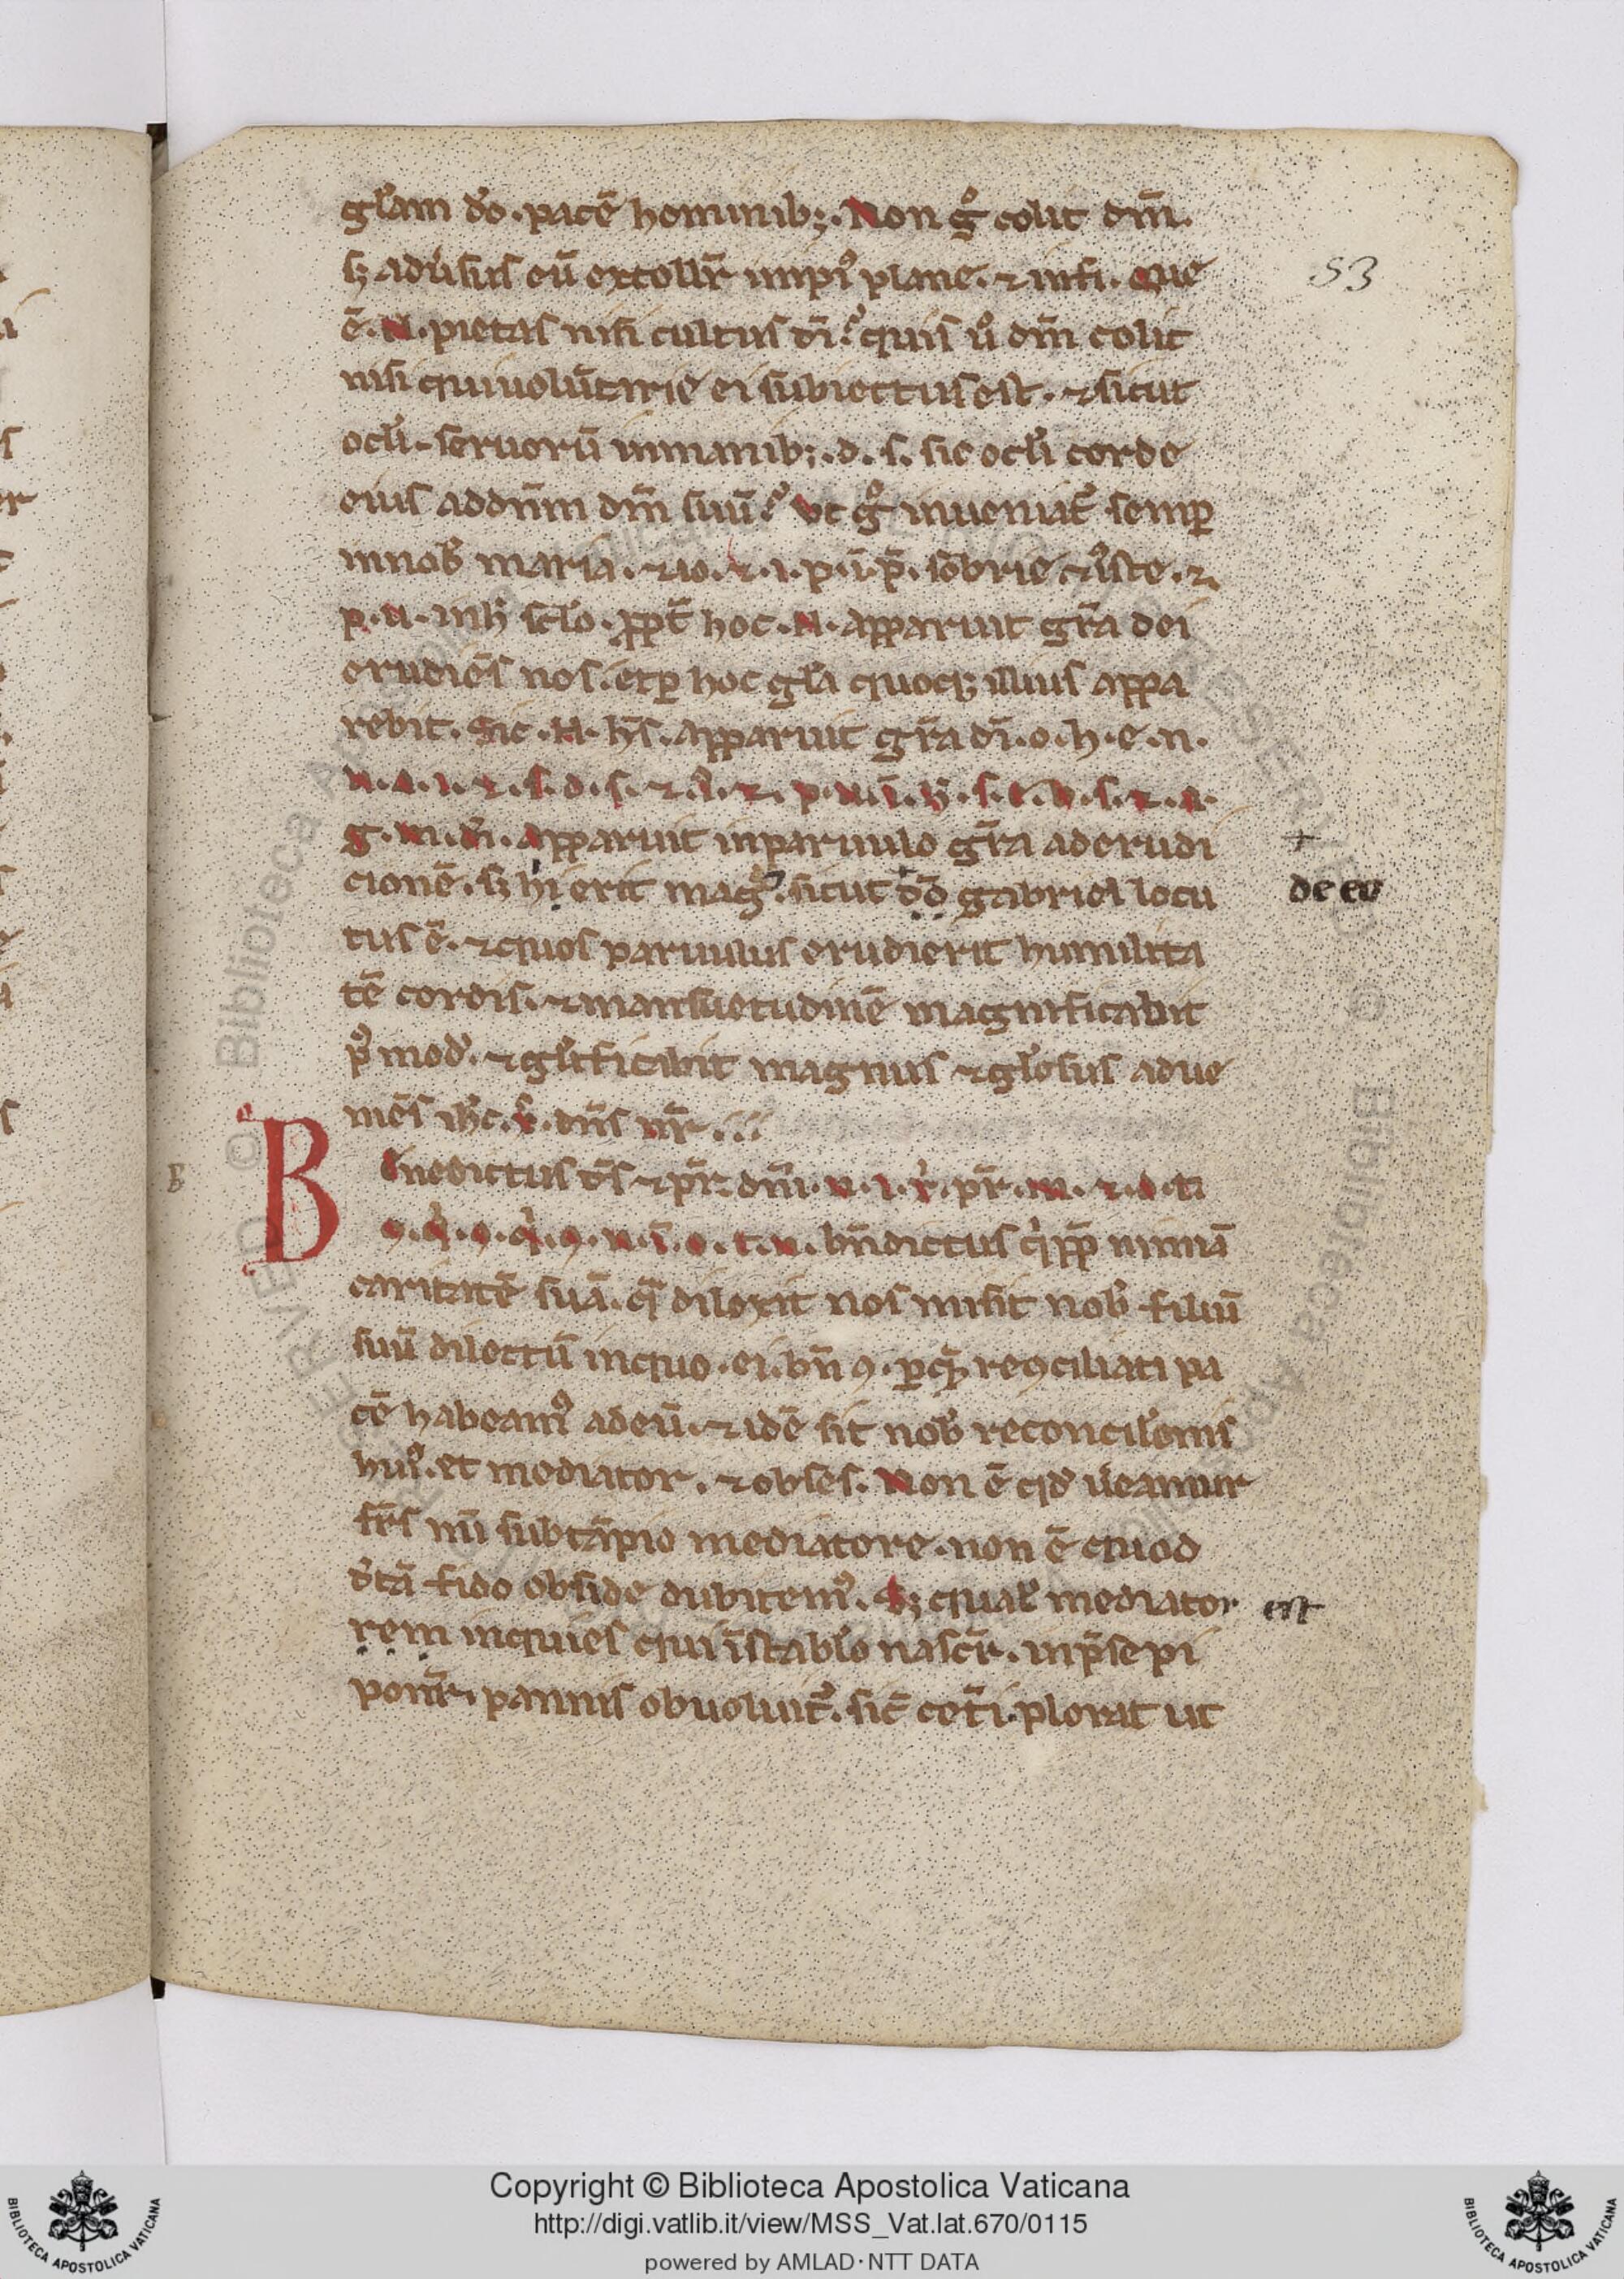 gl'am d'o. pacē hominib;. Non gͦ colit dm̄.
sꝫ aduˀsus eū extollit̄ impiꝰ plane. ⁊ infi. Que
ē. N. pietas nisi cultus dī? quis uͦ dm̄ colit
nisi qui uolūtarie ei subiectus est. ⁊ sicut
ocl'i seruorū inmanib;. d. s. sic ocl'i corde
eius addn̄m dm̄ suū? Vt gͦ inueniat᷑ semꝑ
innob' maria. ⁊ io. ⁊. i. p. ī. p̄. sobrie ⁊ iuˀste. ⁊.
p. n. inh' sclo. ꝓpt̄ hoc. N. apparuit gr̄a dei
erudiēs nos. etꝑ hoc gl'a quoqꝫ illius appa
rebit. Sic. N. h̄s. apparuit gr̄a dī. o. h. e. n.
g. m. dī. Apparuit inparuulo gr̄a aderudi
cionē. sꝫ hi erit magꝰ. sicut dō gabriel locu
tus ē. ⁊ quos paruulus erudierit humilita
tē cordis. ⁊ mansuetudinē magnificabit
pꝰmod'. ⁊ gl'ificabit magnus ⁊ gl'osus adue
niēs ih'c. x̄. dn̄s nr̄.
Benedictus d̄s ⁊ pr̄ dn̄i. n. i. x'. pr̄. m. ⁊. d. ti
bn̄dictus q'pp̄ nimiā
caritatē suā. q̄ dilexit nos misit nob' filiū
suū dilectū inquo. ei. bn̄ 9. ꝑquē re9ciliati pa
cē habeamꝰ adeū. ⁊ idē sit nob' reconcil'onis
huiꝰ. et mediator. ⁊ obses. Non ē qd' u'eamur
fr̄s mī subtāpio mediatore. non ē quod
d'tā fido obside dubitemꝰ. Sꝫ qual' mediator
rem inquies qui īstab'lo nascit̄. inp̄sepi
ponit̄. pannis obuoluit᷑. sic̄ cet̄i. plorat ut
53
+
de eo
B
est
Copyright © Biblioteca Apostolica Vaticana
http://digi.vatlib.it/view/MSS_Vat.lat.670/0115
powered by AMLAD·NTT DATA
BIBLIOTECA APOSTOLICA VATICANA
BIBLIOTECA APOSTOLICA VATICANA